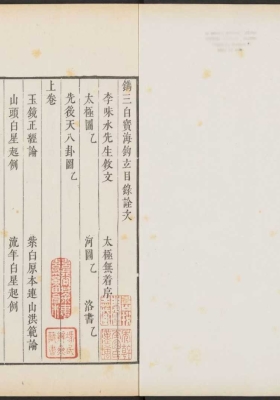 鐫三白寶海鉤玄目錄詮次
李咏永先生敘文 太極無着序
太極圖乙 河圖乙 洛書乙
先後天八卦圖乙
上卷
玉鏡正經論 紫白原本連山洪範論
山頭白星起例 流年白星起例